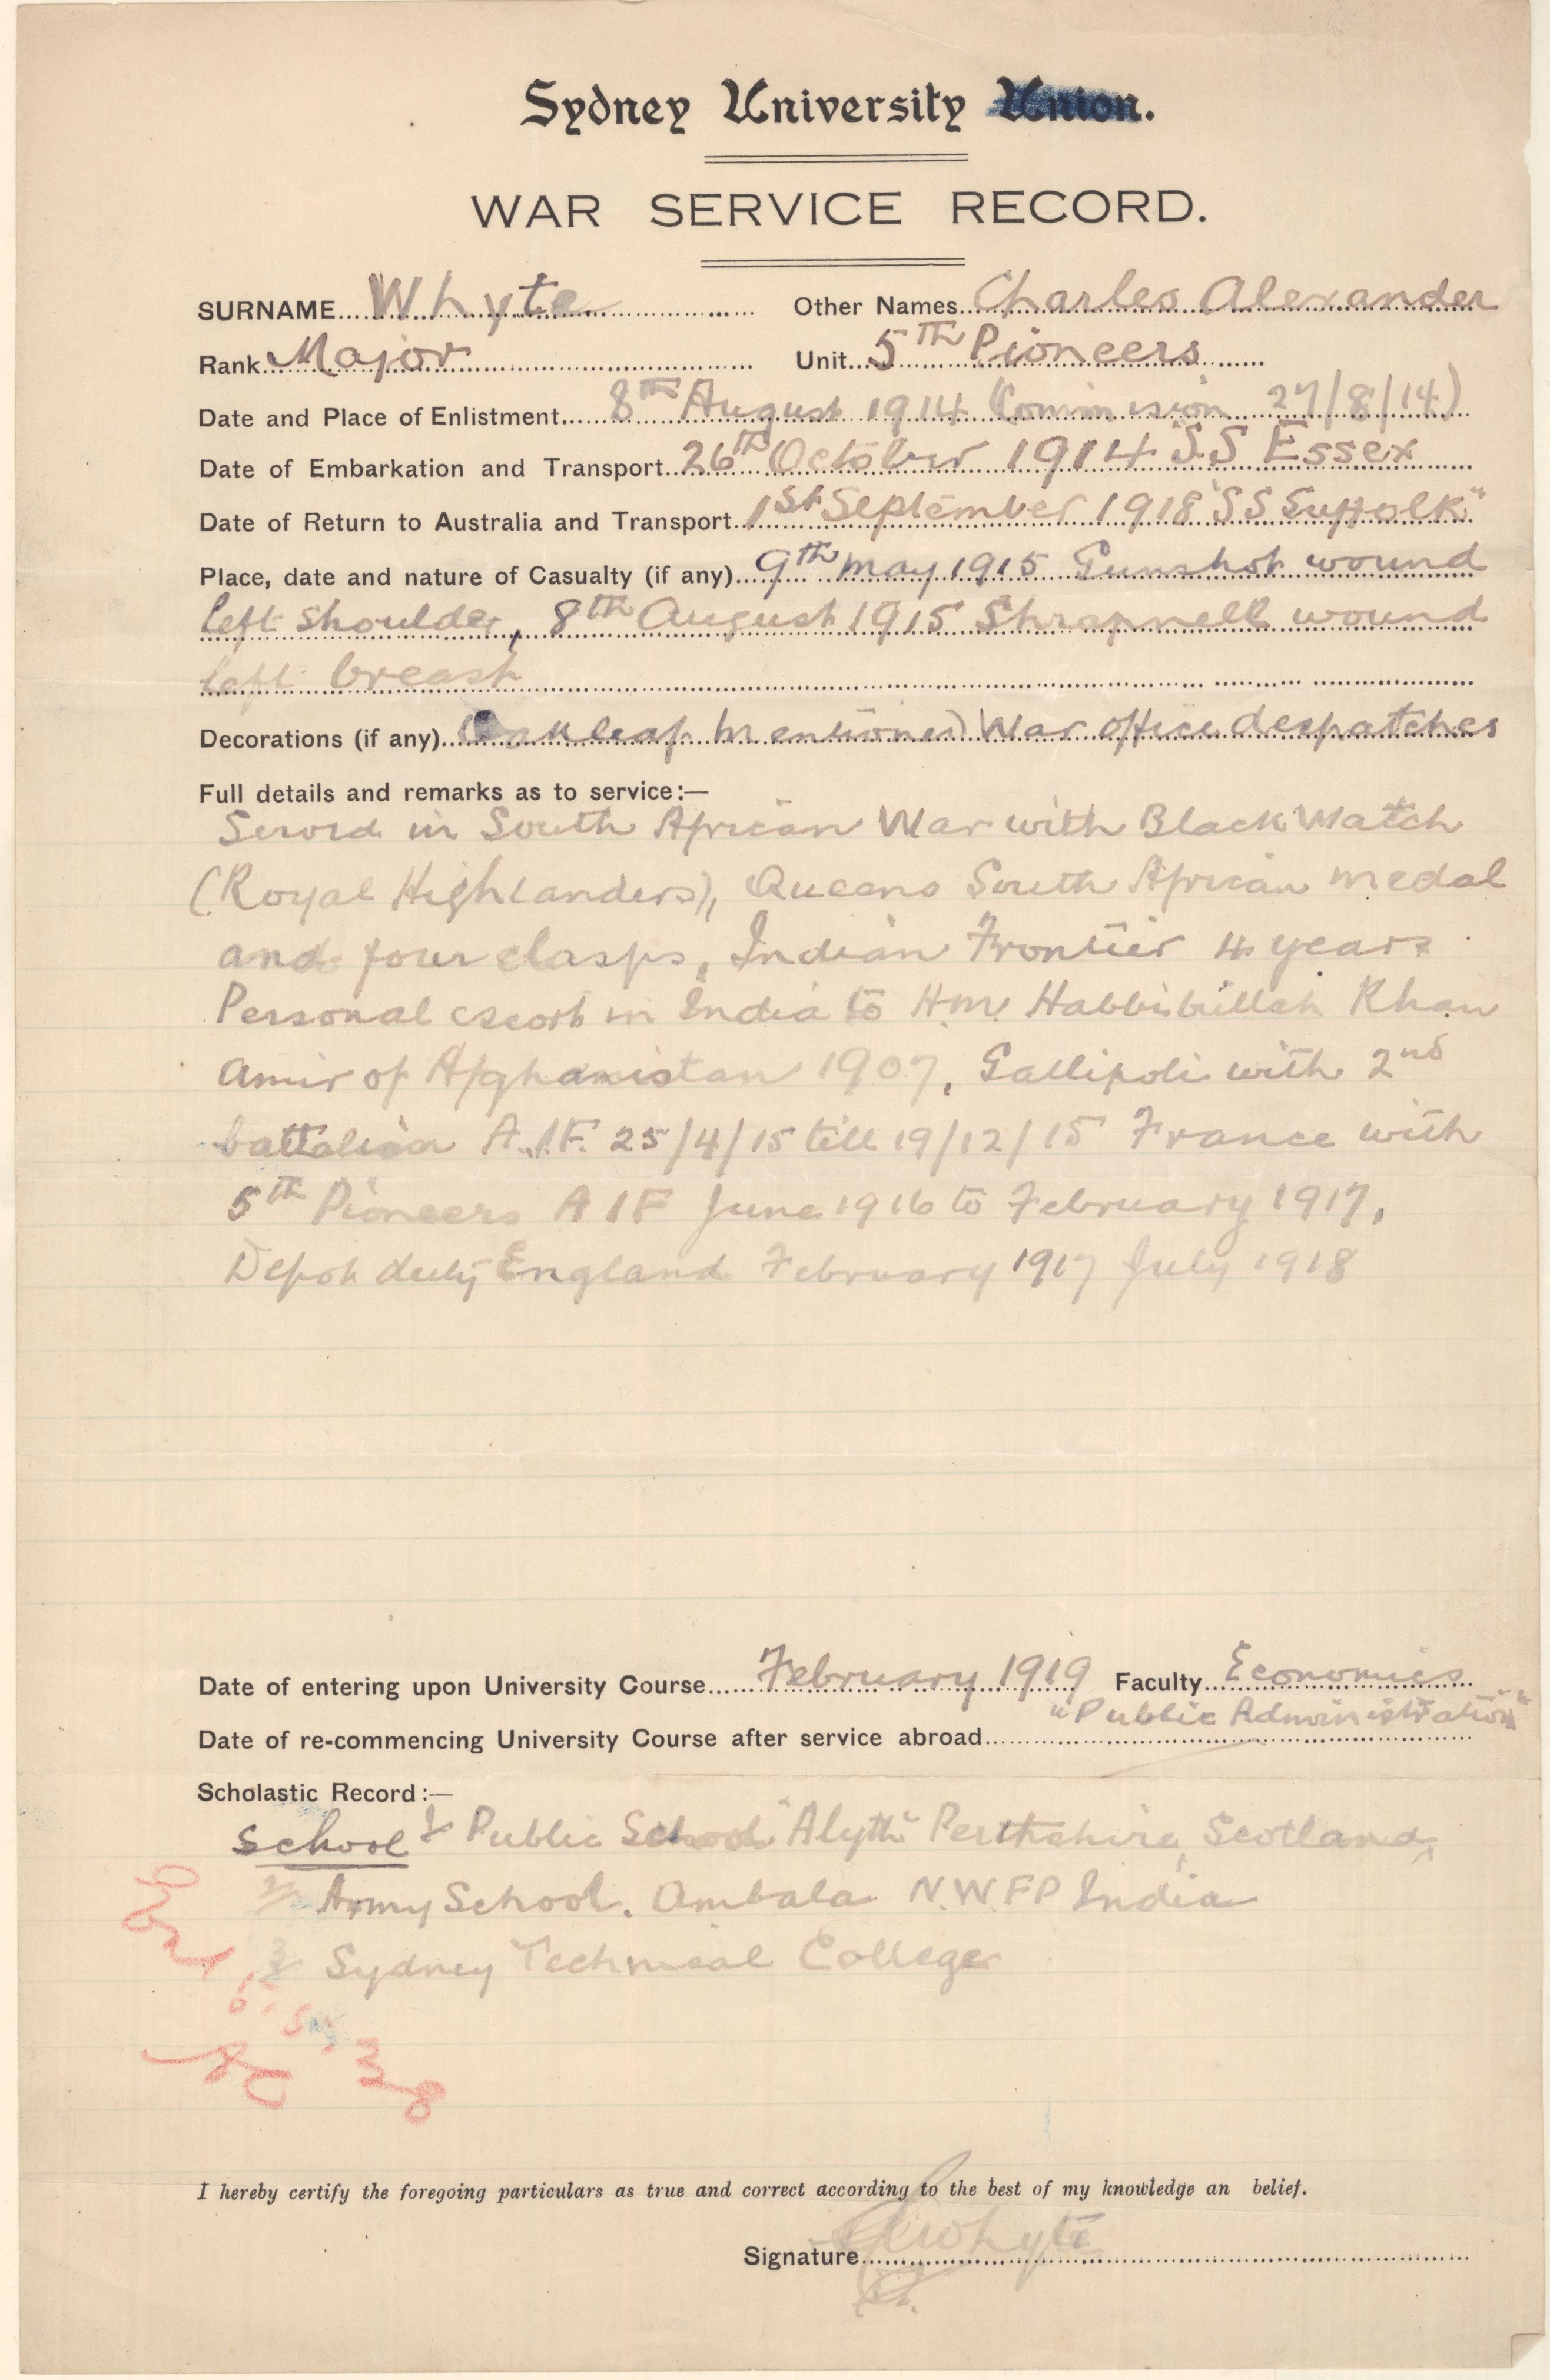 Sydney University Union.
WAR SERVICE RECORD.
SURNAME Whyte Other Names Charles Alexander
Rank Major Unit 5TH Pioneers
Date and Place of Enlistment 8TH August 1914 (Commission 27/8/14)
Date of Embarkation and Transport 26TH October 1914 SS Essex
Date of Return to Australia and Transport 1st September 1918 "SS Suffolk"
Place, date and nature of Casualty (if any) 9th May 1915 Gunshot wound
left shoulder, 8th August 1915 Shrapnell wound
left breast
Decorations (if any) (Oak leaf Mentioned) War office despatches
Full details and remarks as to service:—
Served in South African War with Black Watch
(Royal Highlanders), Queens South African medal
and four clasps, Indian Frontier 4 years
Personal escort in India to H.M. Habbibullah Khan
Amir of Afghanistan 1907, Gallipoli with 2nd
battalion A.I.F. 25/4/15 till 19/12/15 France with
5th Pioneers A I F June 1916 to February 1917,
Depot duty England February 1917 July 1918
Date of entering upon University Course February 1919 Faculty Economics
"Public Administration"
Date of re-commencing University Course after service abroad
Scholastic Record:—
School 1/ Public School "Alyth" Perthshire, Scotland,
2/ Army School. Ambala N.W.F.P India
3/ Sydney Technical College
I hereby certify the foregoing particulars as true and correct according to the best of my knowledge an belief.
Signature Whyte